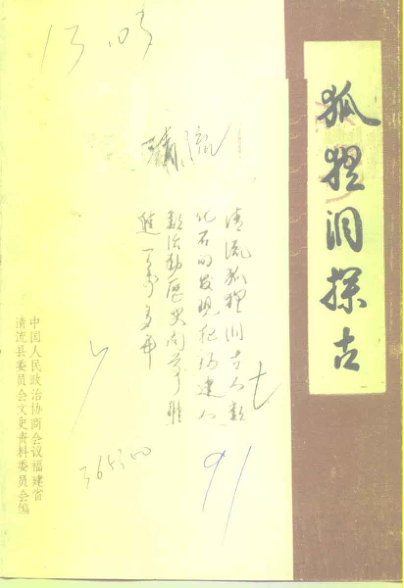 狐狸洞探古
清流狐狸洞古人類
化石的发现把福建人
類活動歷史向前推
進一萬多年
中国人民政治协商会议福建省
清流县委员会文史资料委员会编
365300
91